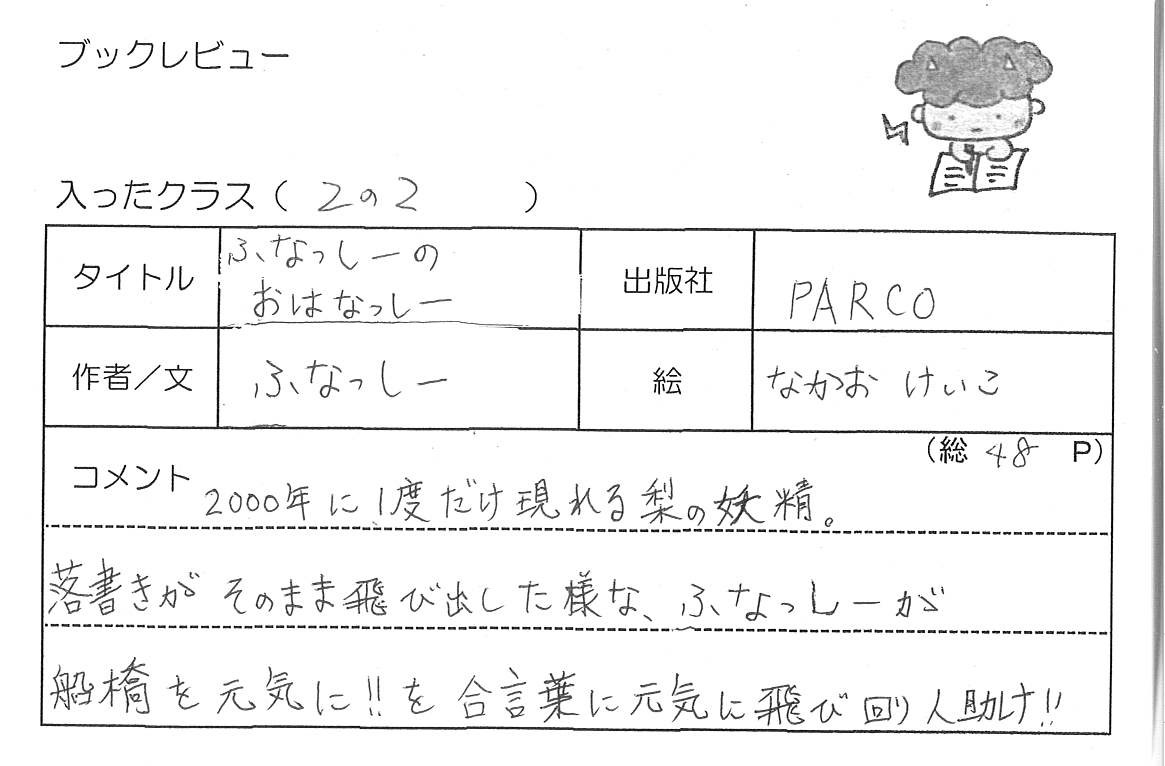 ブックレビュー
入ったクラス（ 2の2 ）
タイトル
ふなっしーの
おはなっしー
出版社
PARCO
作者／文
ふなっしー
絵
なかお けいこ
（総 48 P）
コメント
2000年に1度だけ現れる梨の妖精。
落書きがそのまま飛び出した様な、ふなっしーが
船橋を元気に!!を合言葉に元気に飛び回り人助け!!